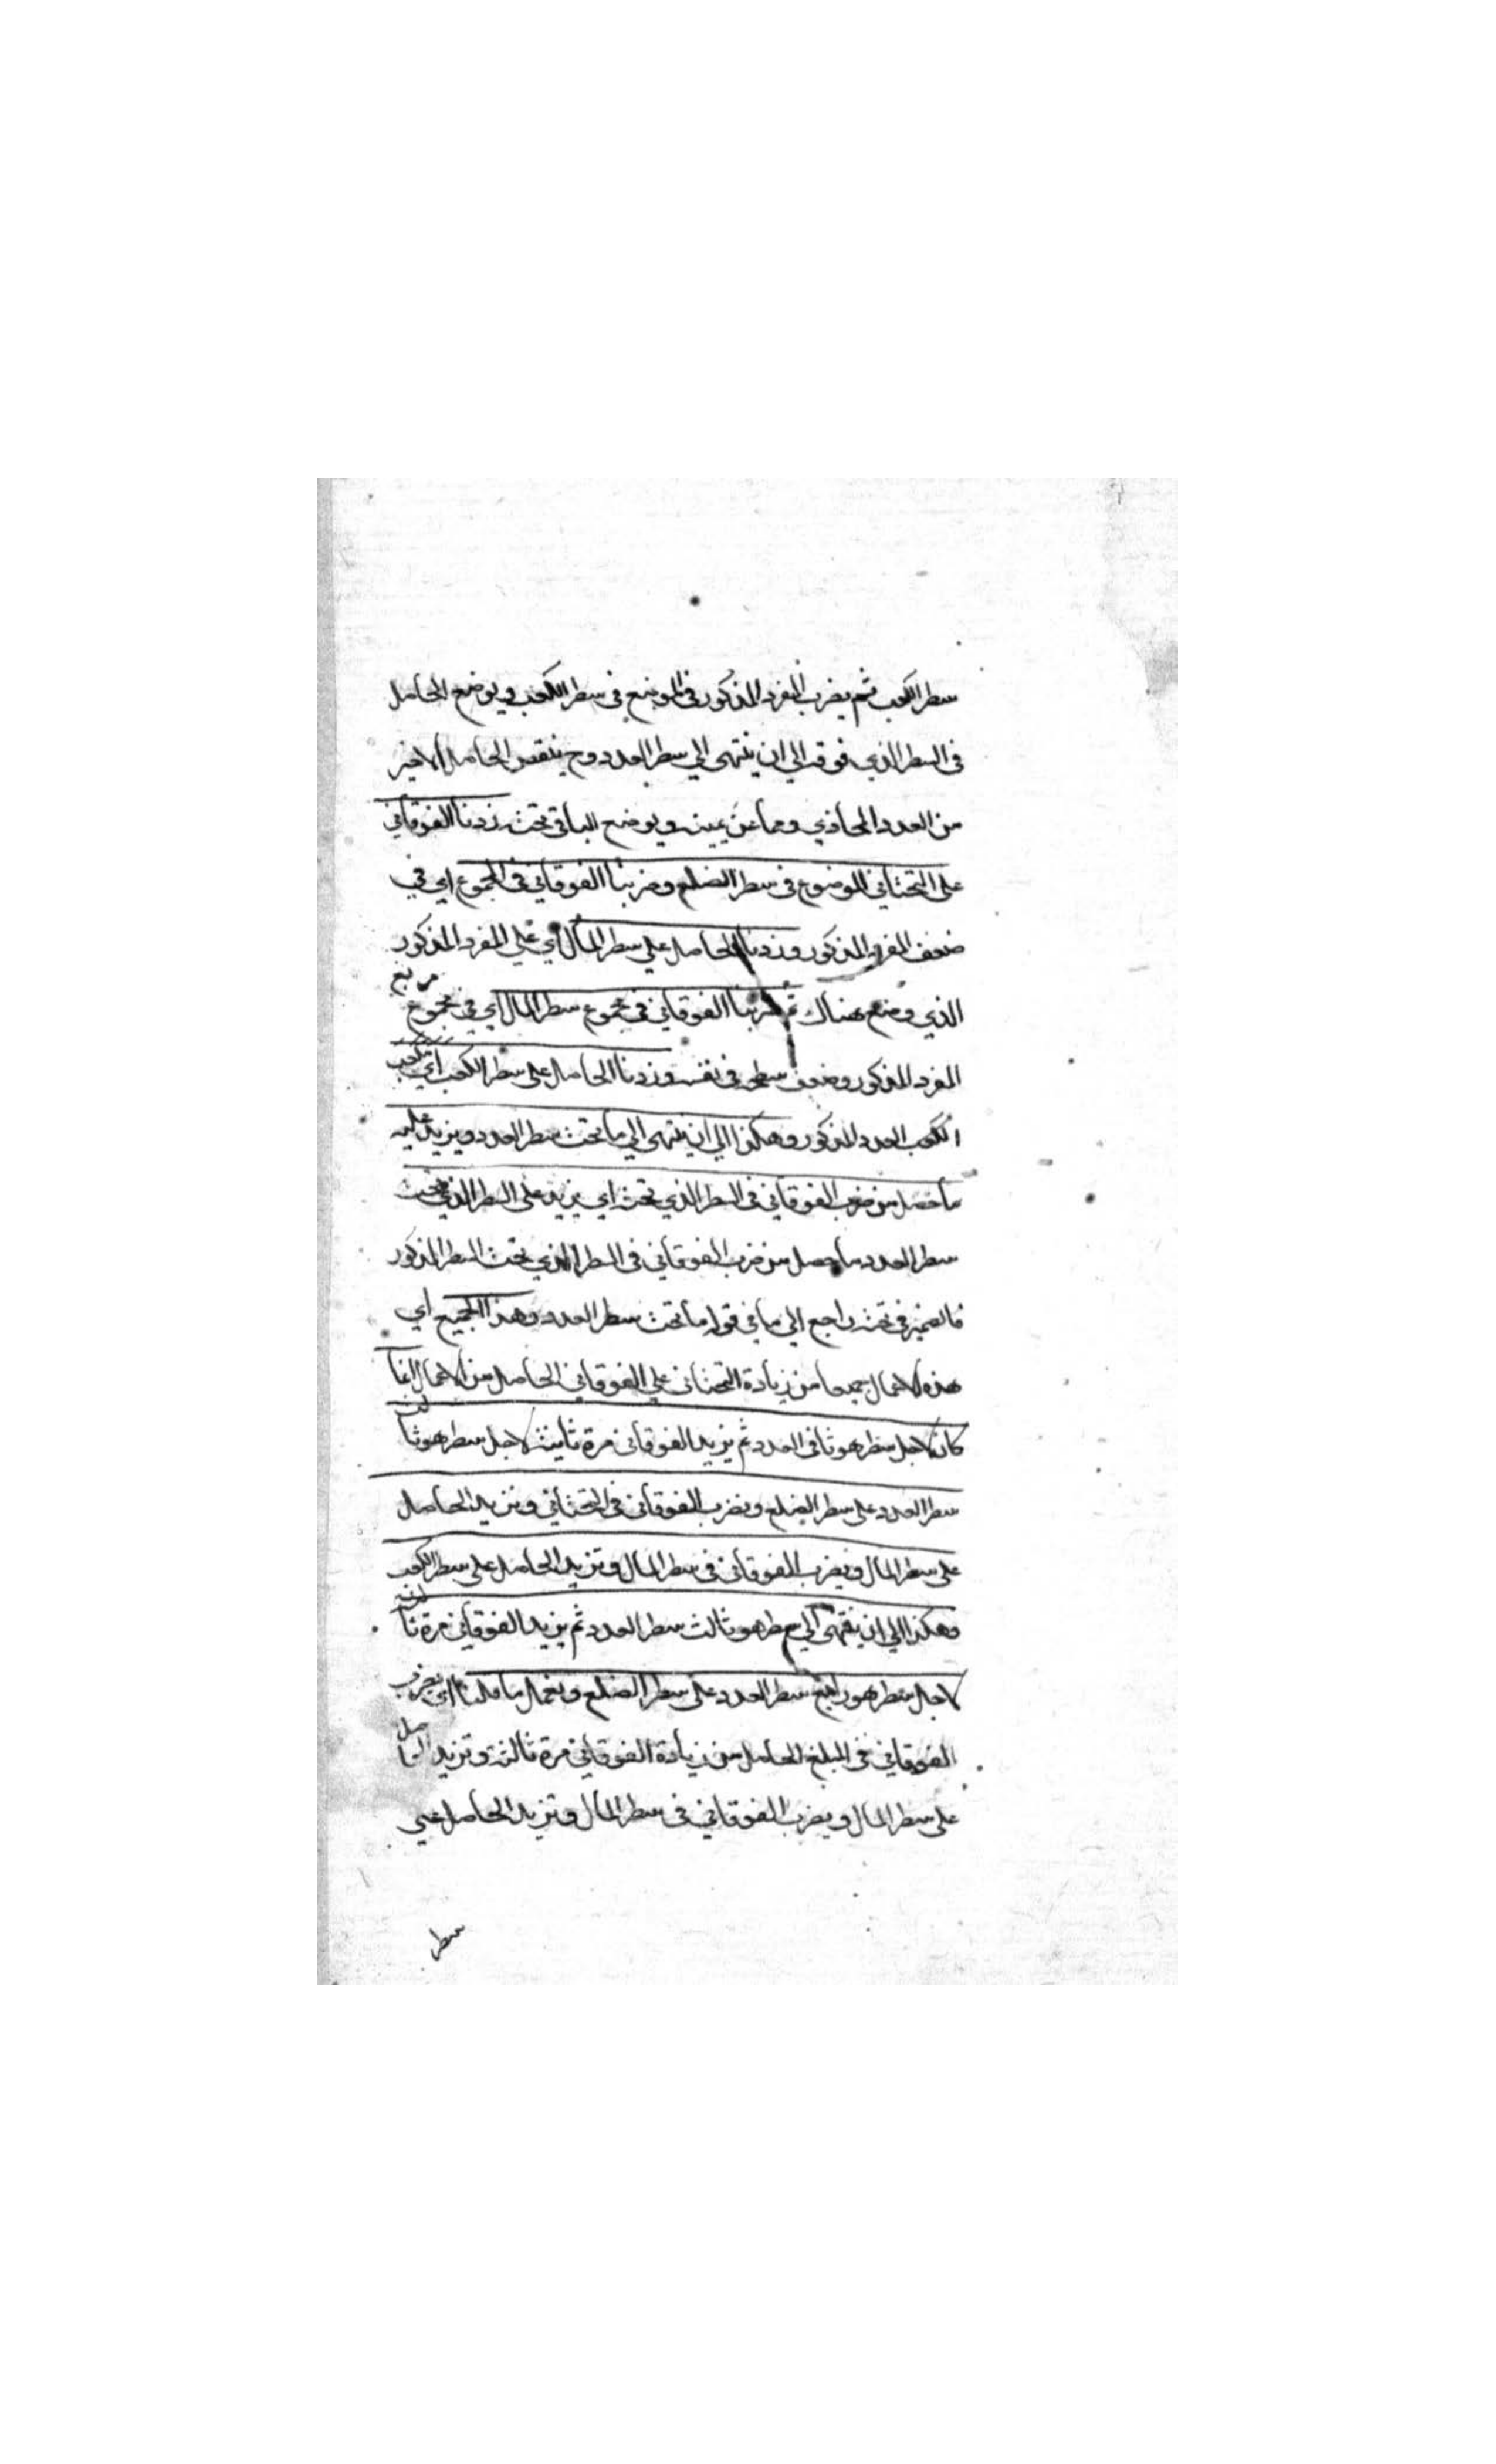 سطر الكعب ثم يضرب المفرد المذكور في الموضع في سطر الكعب ويوضع الحاصل
في السطر الذي فوقه الى ان ينتهى الي سطر العدد وح ينقص الحاصل الاخير
من العدد المحاذي وما عن يمينه ويوضع الباقي تحته زدنا الفوقاني
على التحتاني الموضوع في سطر الضلع وضربنا الفوقاني في المجموع اي في
ضعف المفرد المذكور وزدنا الحاصل علي سطر المال اي علي المفرد المذكور
الذي وضع هناك ثم ضربنا الفوقاني في مجموع سطر المال اي في مجموع مربع
المفرد المذكور وضعف سطحه في نفسه وزدنا الحاصل على سطر الكعب اي مكعب
الكعب العدد المذكور وهكذا الي ان ينتهى الي ما تحت سطر العدد ويزيد عليه
ما حصل من ضرب الفوقاني في السطر الذي تحته اي يزيد على السطر الذي تحت
سطر العدد ما حصل من ضرب الفوقاني في السطر الذي تحت السطر المذكور
فالضمير في تحته راجع الي ما في قوله ما تحت سطر العدد وهذا الجميع اي
هذه الاعمال جميعا من زيادة التحتاني علي الفوقاني الحاصل من الاعمال انما
كان لاجل سطر هو ثاني العدد ثم يزيد الفوقاني مرة ثانية لاجل سطر هو ثالث
سطر العدد على سطر الضلع ونضرب الفوقاني في التحتاني ونزيد الحاصل
على سطر المال ونضرب الفوقاني في سطر المال ونزيد الحاصل على سطر الكعب
وهكذا الي ان ينتهى الي سطر هو ثالث سطر العدد ثم يزيد الفوقاني مرة ثالثة
لاجل سطر هو رابع سطر العدد على سطر الضلع ونعمل ما قلنا اي نضرب
الفوقاني في المبلغ الحاصل من زيادة الفوقاني مرة ثالثة ونزيد الحاصل
على سطر المال ويضرب الفوقاني في سطر المال ونزيد الحاصل على
سطر